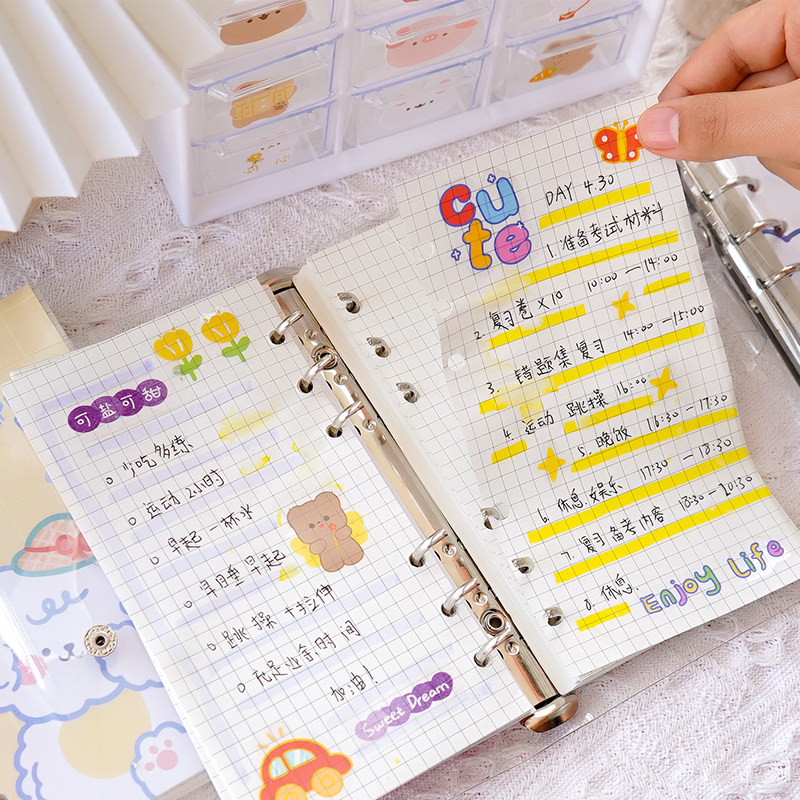 可盐可甜
少吃多练
运动 2小时
早起一杯水
早日垂早起
跳操+拉伸
充足业余时间
加油!
Sweet Dream
cute
DAY 4.30
1. 准备考试材料
2. 复习卷 X10 10:00 — 14:00
3. 错题集复习 14:00 — 15:00
4. 运动 跳操 16:00
5. 晚饭 16:30 — 17:30
6. 休息.娱乐 17:30 — 18:30
7. 复习备考内容 18:30 — 20:30
8. 休息.
Enjoy Life